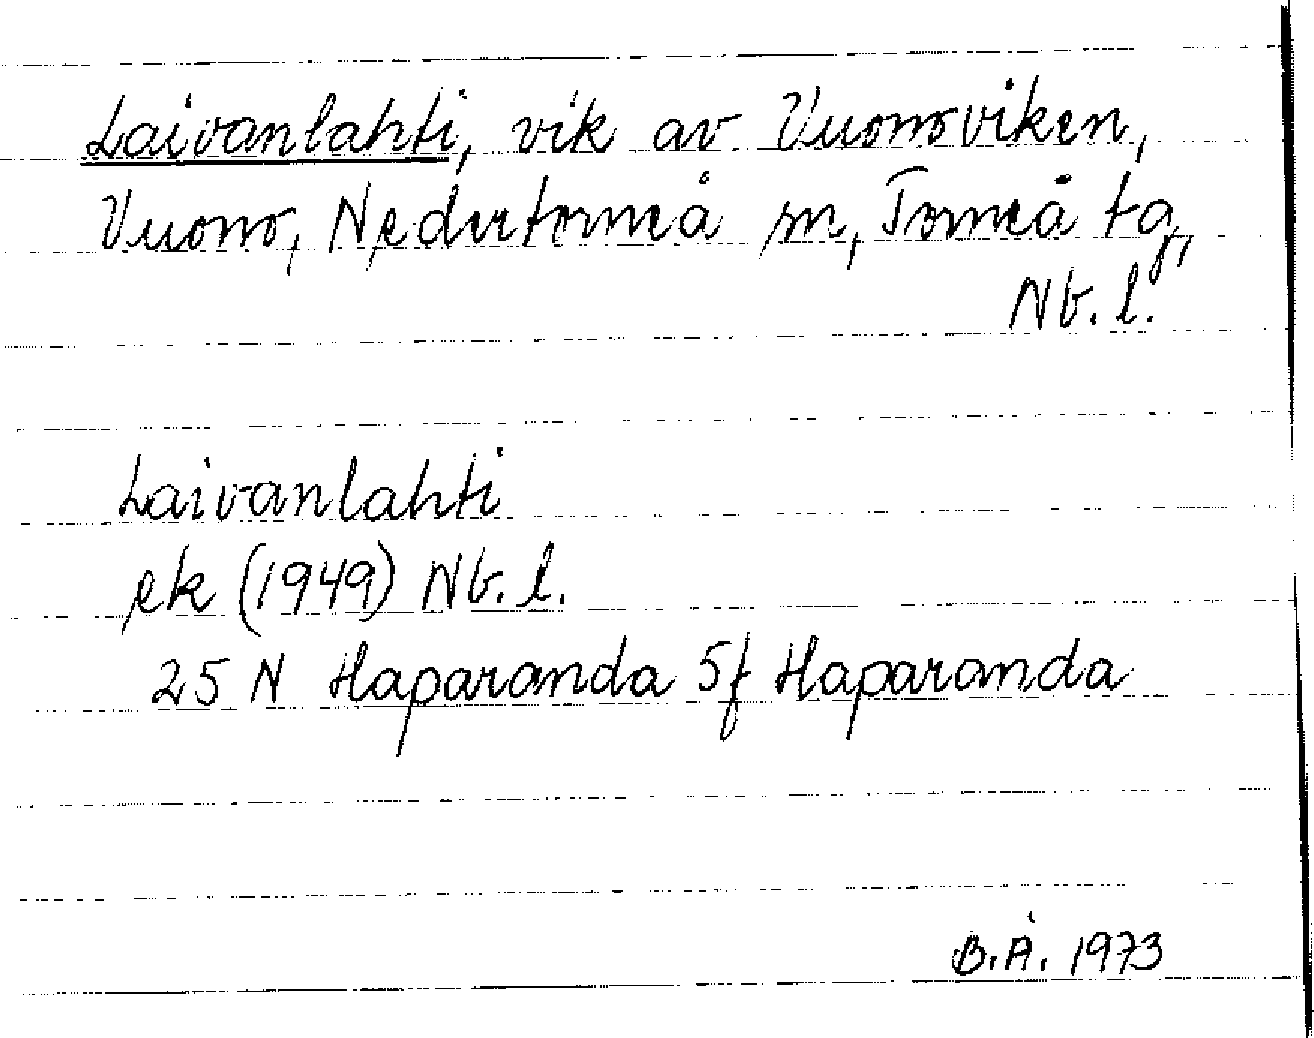 Laivanlahti, vik av Vuonoviken,
Vuono, Nedertorneå sn, Torneå tg,
Nb. l.
Laivanlahti
ek (1949) Nb. l.
25 N Haparanda 5f Haparanda
B.Å. 1973